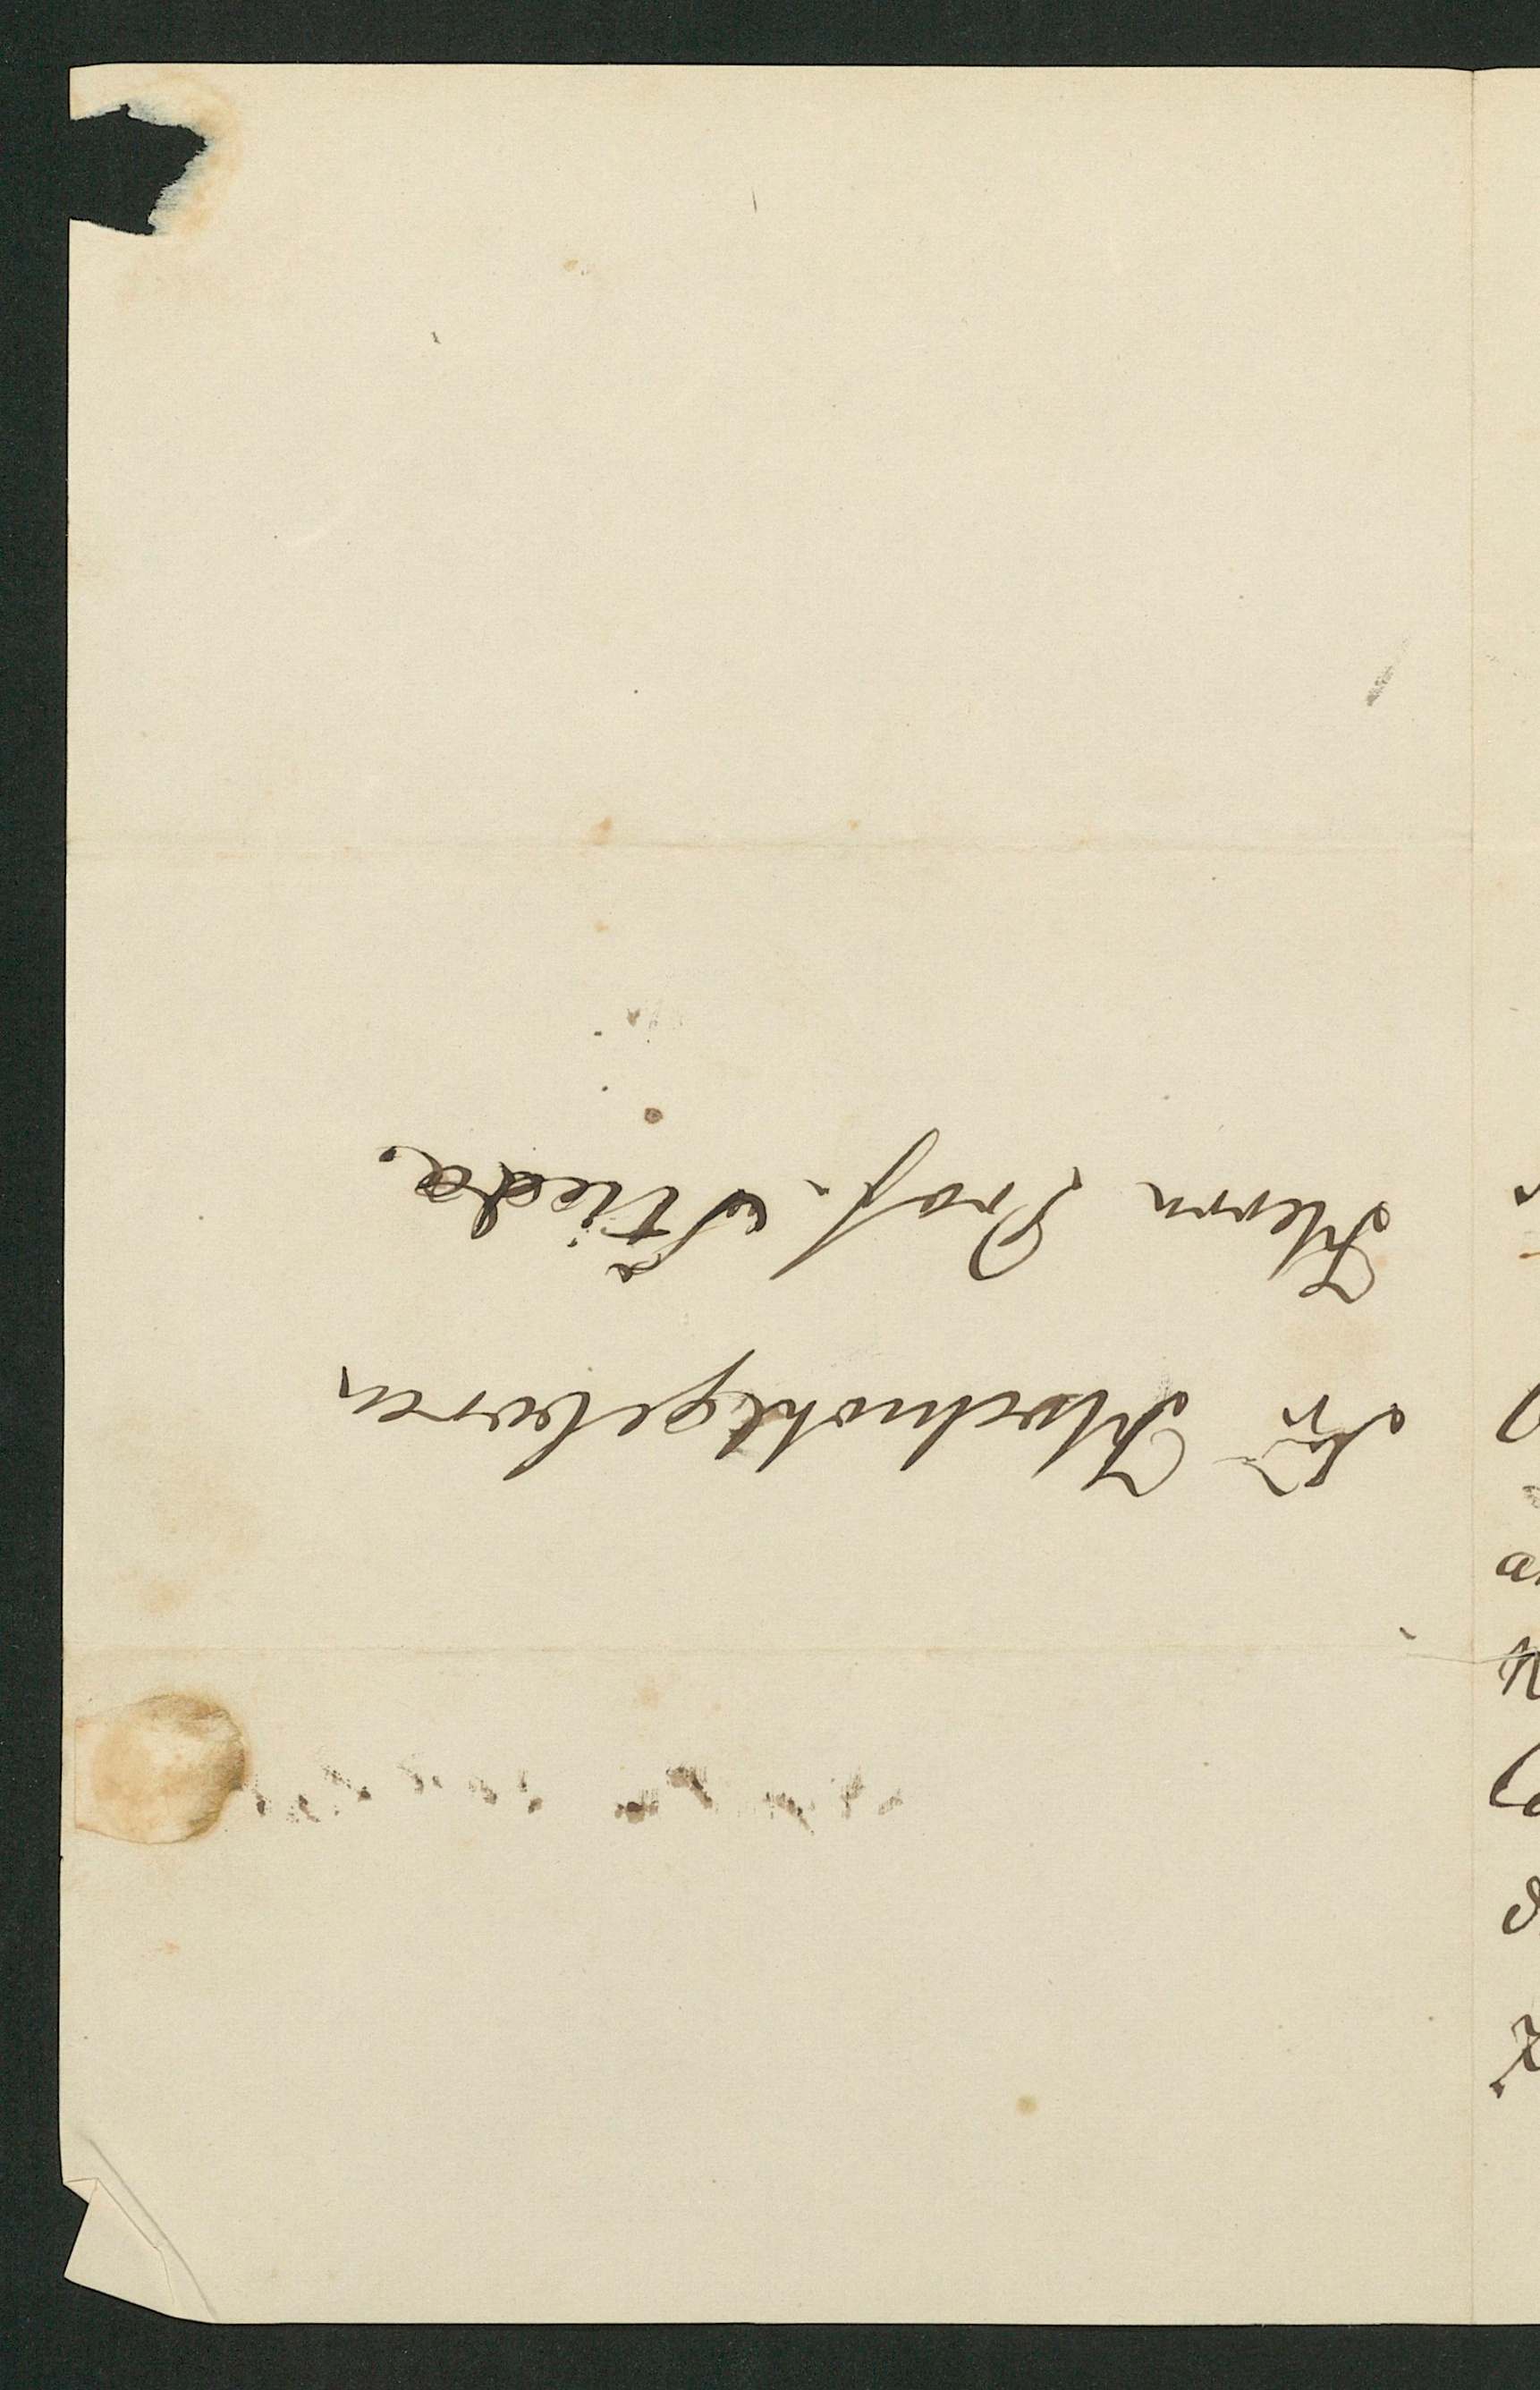 Sr Hochwohlgeboren
Herrn Prof. Stieda.